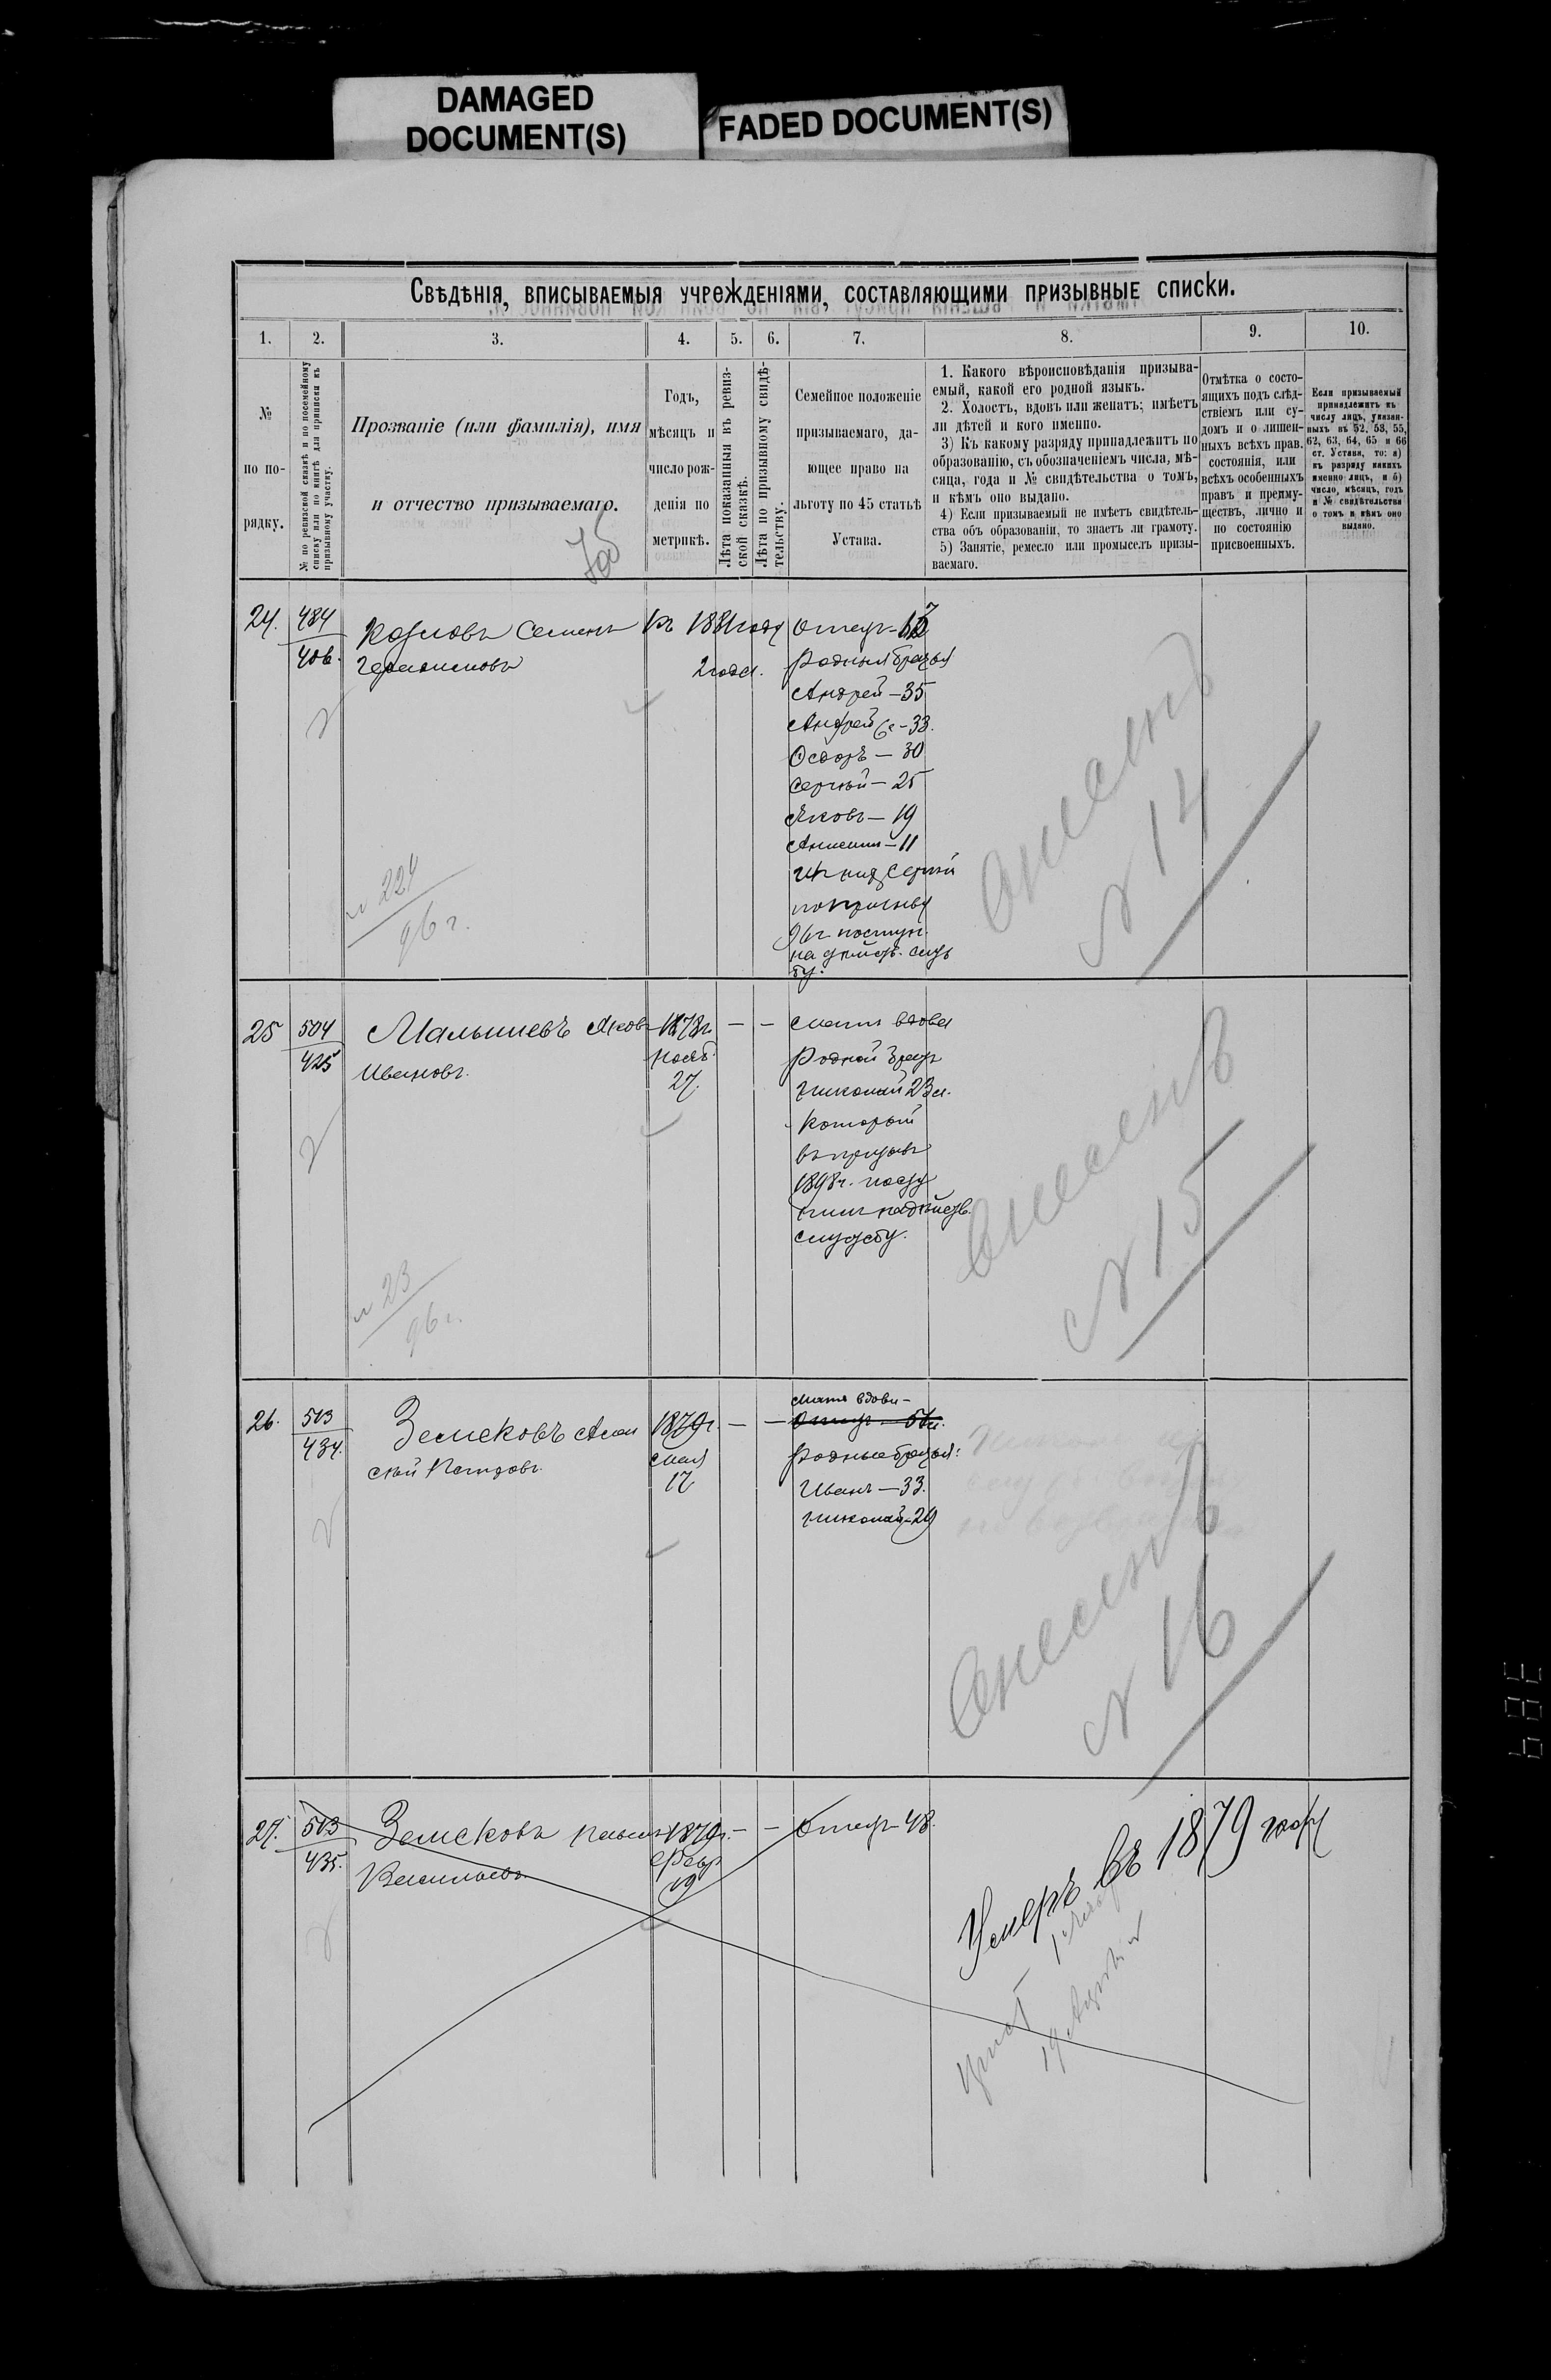 DAMAGED
DOCUMENT(S)
FADED DOCUMENT(S)
Свѣдѣнія, вписываемыя учрежденіями, составляющими призывные списки.
1. 2. 3. 4. 5. 6. 7. 8. 9. 10.
№
по по-
рядку.
№ по ревизской сказкѣ и по посемейному
списку или по книгѣ для приписки къ
призывному участку.
Прозваніе (или фамилія), имя
и отчество призываемаго.
Годъ,
мѣсяцъ и
число рож-
денія по
метрикѣ.
Лѣта показанныя въ ревиз-
ской сказкѣ.
Лѣта по призывному свидѣ-
тельству.
Семейное положеніе
призываемаго, да-
ющее право на
льготу по 45 статьѣ
Устава.
1. Какого вѣроисповѣданія призыва-
емый, какой его родной языкъ.
2. Холостъ, вдовъ или женатъ; имѣетъ
ли дѣтей и кого именно.
3) Къ какому разряду принадлежитъ по
образованію, съ обозначеніемъ числа, мѣ-
сяца, года и № свидѣтельства о томъ,
и кѣмъ оно выдано.
4) Если призываемый не имѣетъ свидѣтель-
ства объ образованіи, то знаетъ ли грамоту.
5) Занятіе, ремесло или промыселъ призы-
ваемаго.
Отмѣтка о состо-
ящихъ подъ слѣд-
ствіемъ или су-
домъ и о лишен-
ныхъ всѣхъ прав.
состоянія, или
всѣхъ особенныхъ
правъ и преиму-
ществъ, лично и
по состоянію
присвоенныхъ.
Если призываемый
принадлежитъ къ
числу лицъ, указан-
ныхъ въ 52, 53, 55,
62, 63, 64, 65 и 66
ст. Устава, то: а)
къ разряду какихъ
именно лицъ, и б)
число, мѣсяцъ, годъ
и № свидѣтельства
о томъ и кѣмъ оно
выдано.
24. 484
406.
Козловъ Семенъ
Къ 1881 году
2 года.
Отецъ
Родныя братья
Андрей – 35
Андрей – 33.
Ѳедоръ – 30
Сергѣй – 25
Яковъ – 19
– 11
Изъ нихъ Сергѣй
по призыву
96 г. поступ.
на дѣйств. служ
бу.
№ 224
96 г.
Внесенъ
№ 14
25 504
425
Малышевъ Яков
Ивановъ.
1878 г.
нояб.
27.
– –
Мать вдова
Родной братъ
Николай 23 л.
Который
въ призывъ
1898 г. посту
пилъ на дѣйств.
службу.
№ 23
96 г.
Внесенъ
№ 15
26. 513
434.
Земсковъ Алек
сѣй Петровъ.
1879 г.
Мая
17
– –
Мать вдова –
Отецъ
Родные братья:
Иванъ – 33.
Николай – 29
Внесенъ
№ 16
27. 513
435.
Земсковъ Павелъ
Васильевъ
1879 г.
Февр
19
– –
Отецъ – 48.
Умеръ въ 1879 году
19 Августа